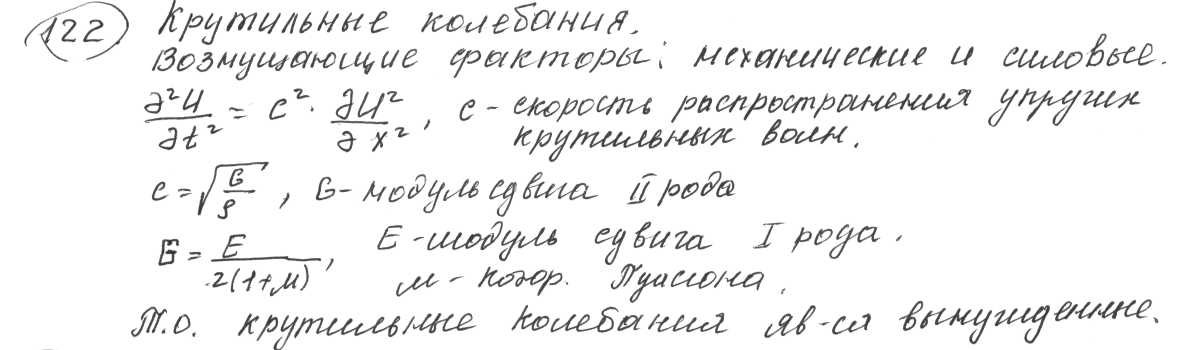 122 Крутильные колебания.
Возмущающие факторы: механические и силовые.
∂²U/∂t² = c² · ∂U²/∂x², c - скорость распространения упругих
крутильных волн.
c = √(G/ρ), G - модуль сдвига II рода
G = E/2(1+μ), E - модуль сдвига I рода.
μ - коэф. Пуассона.
Т.О. крутильные колебания яв-ся вынужденные.